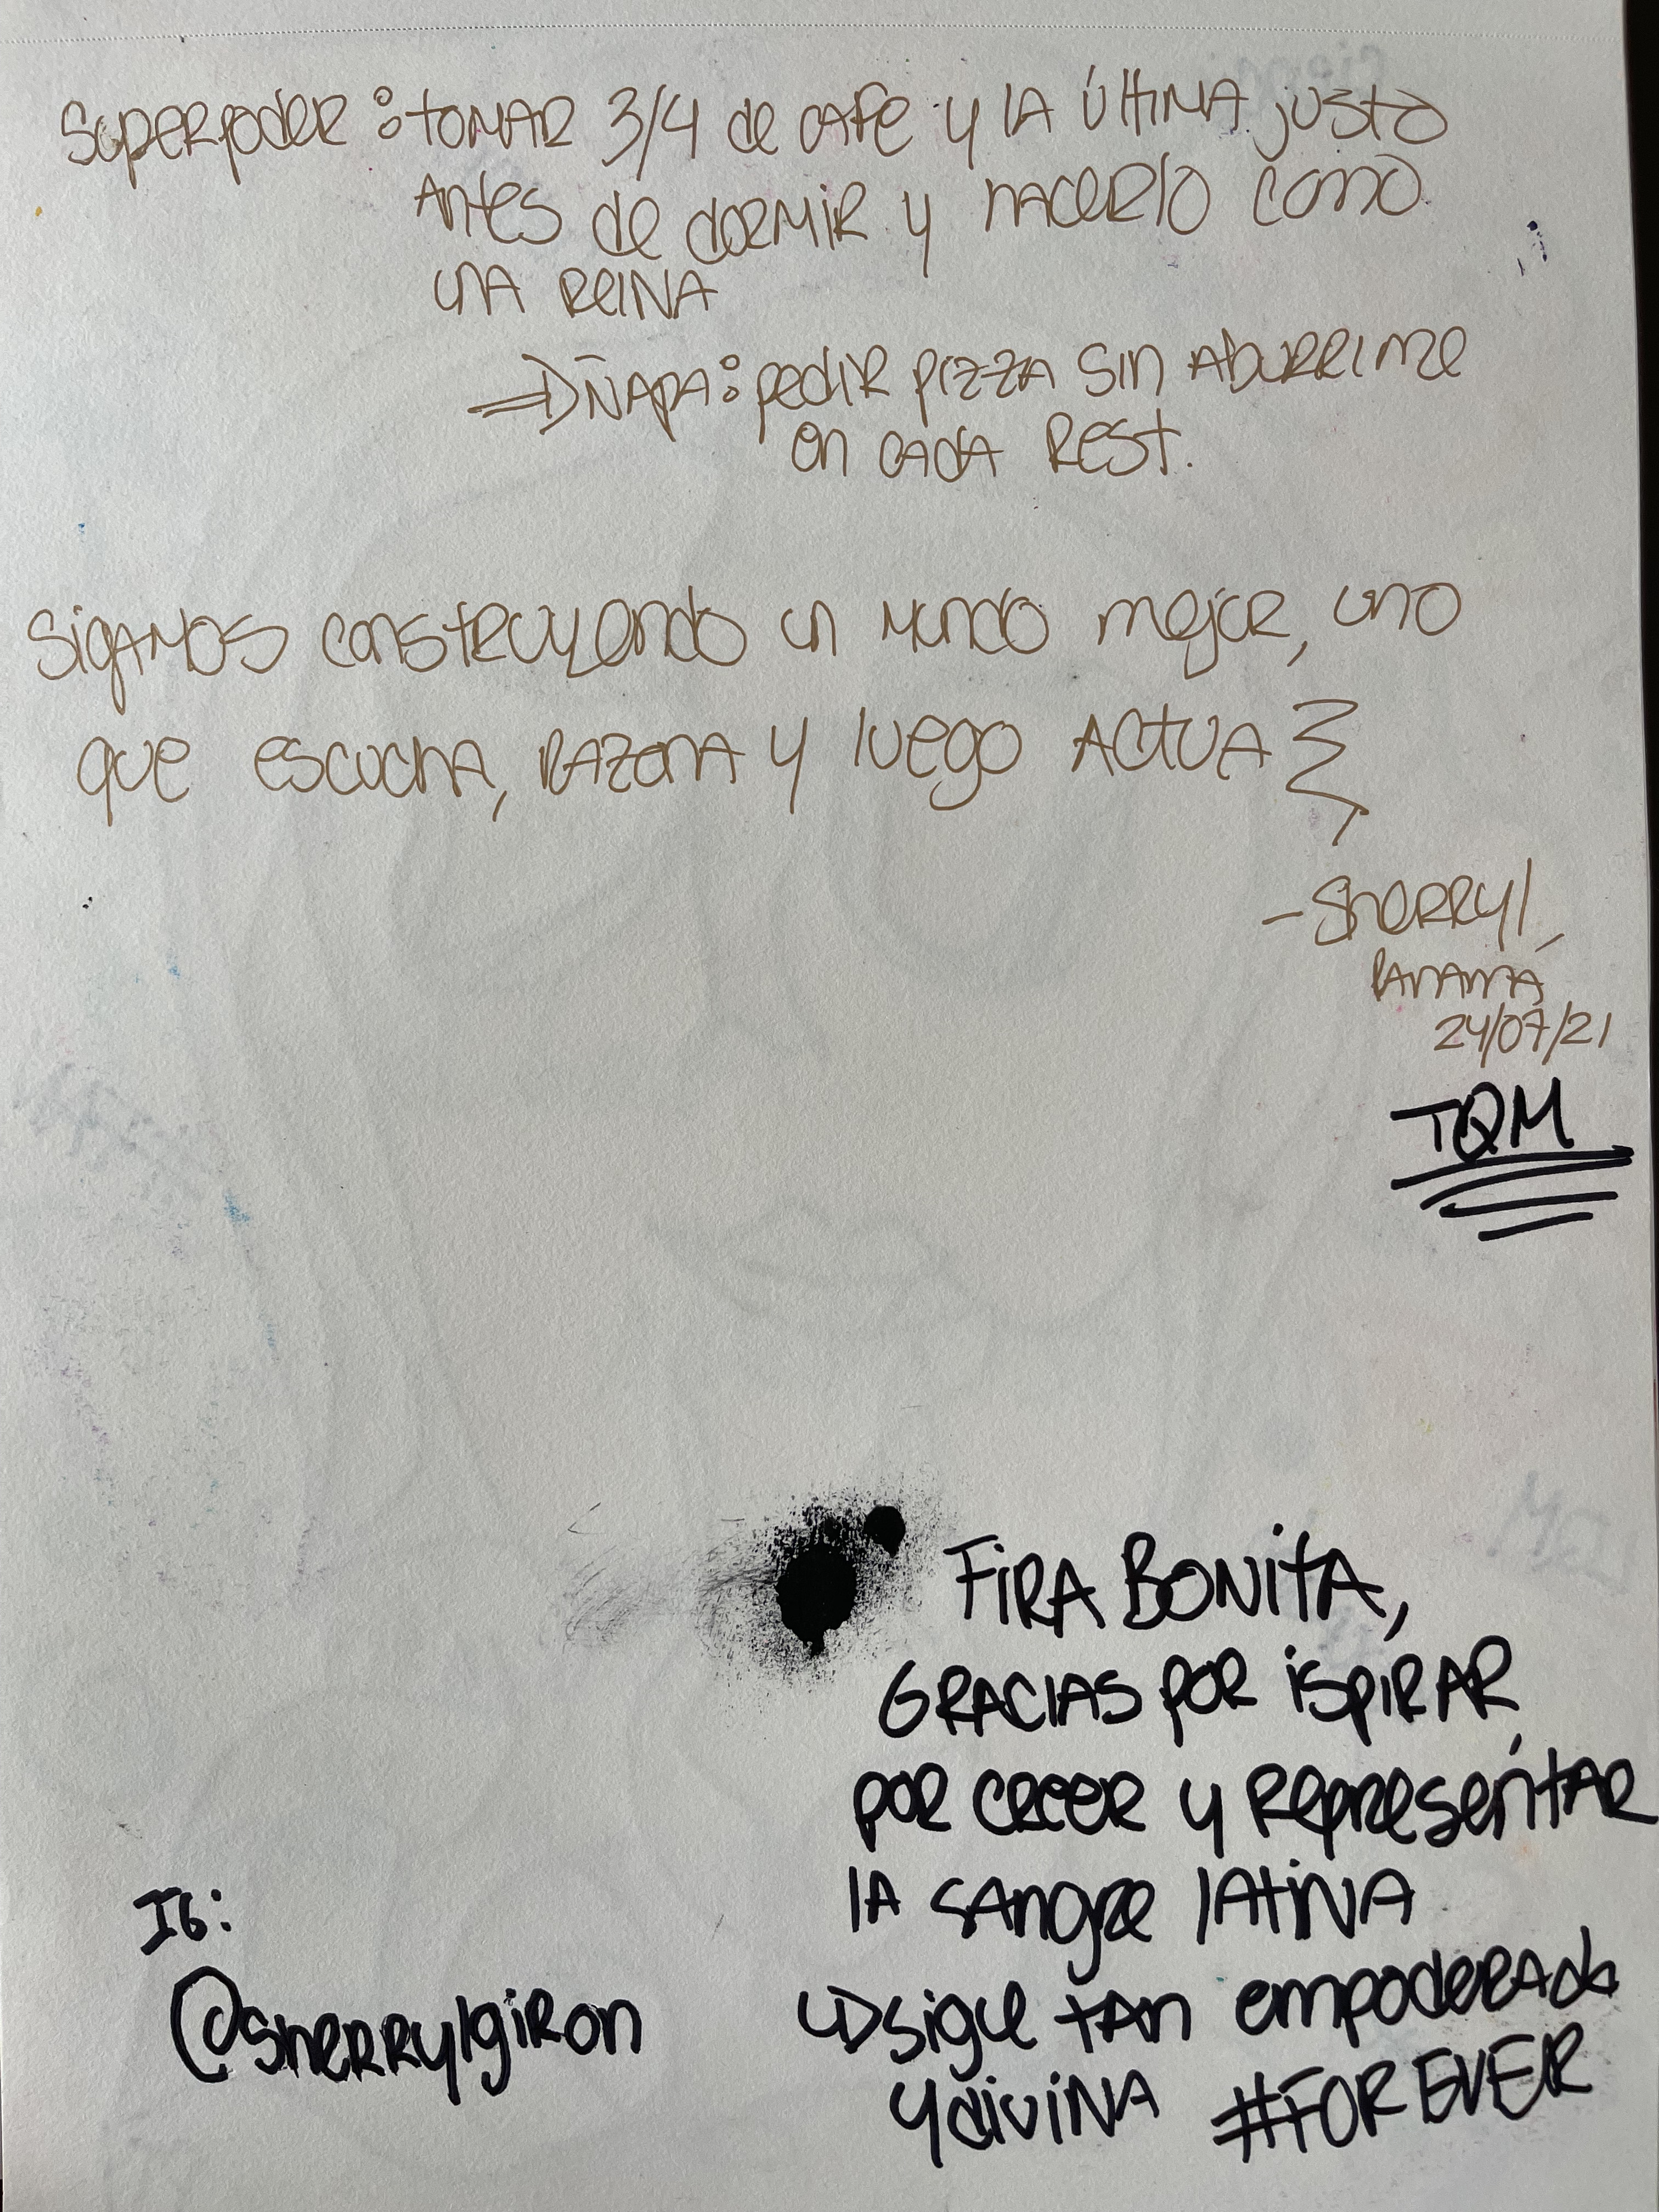 Superpoder: tomar 3/4 de cafe y la última justo
antes de dormir y hacerlo como
una reina
⇒ Ñapa: pedir pizza sin aburrirme
en cada rest.
Sigamos construyendo un mundo mejor, uno
que escucha, razona y luego actua
- Sherryl,
Panamá
24/07/21
TQM
Fira Bonita,
Gracias por ispirar,
por creer y representar
la sangre latina
↳ sigue tan empoderada
y divina #FOREVER
IG:
@sherrylgiron